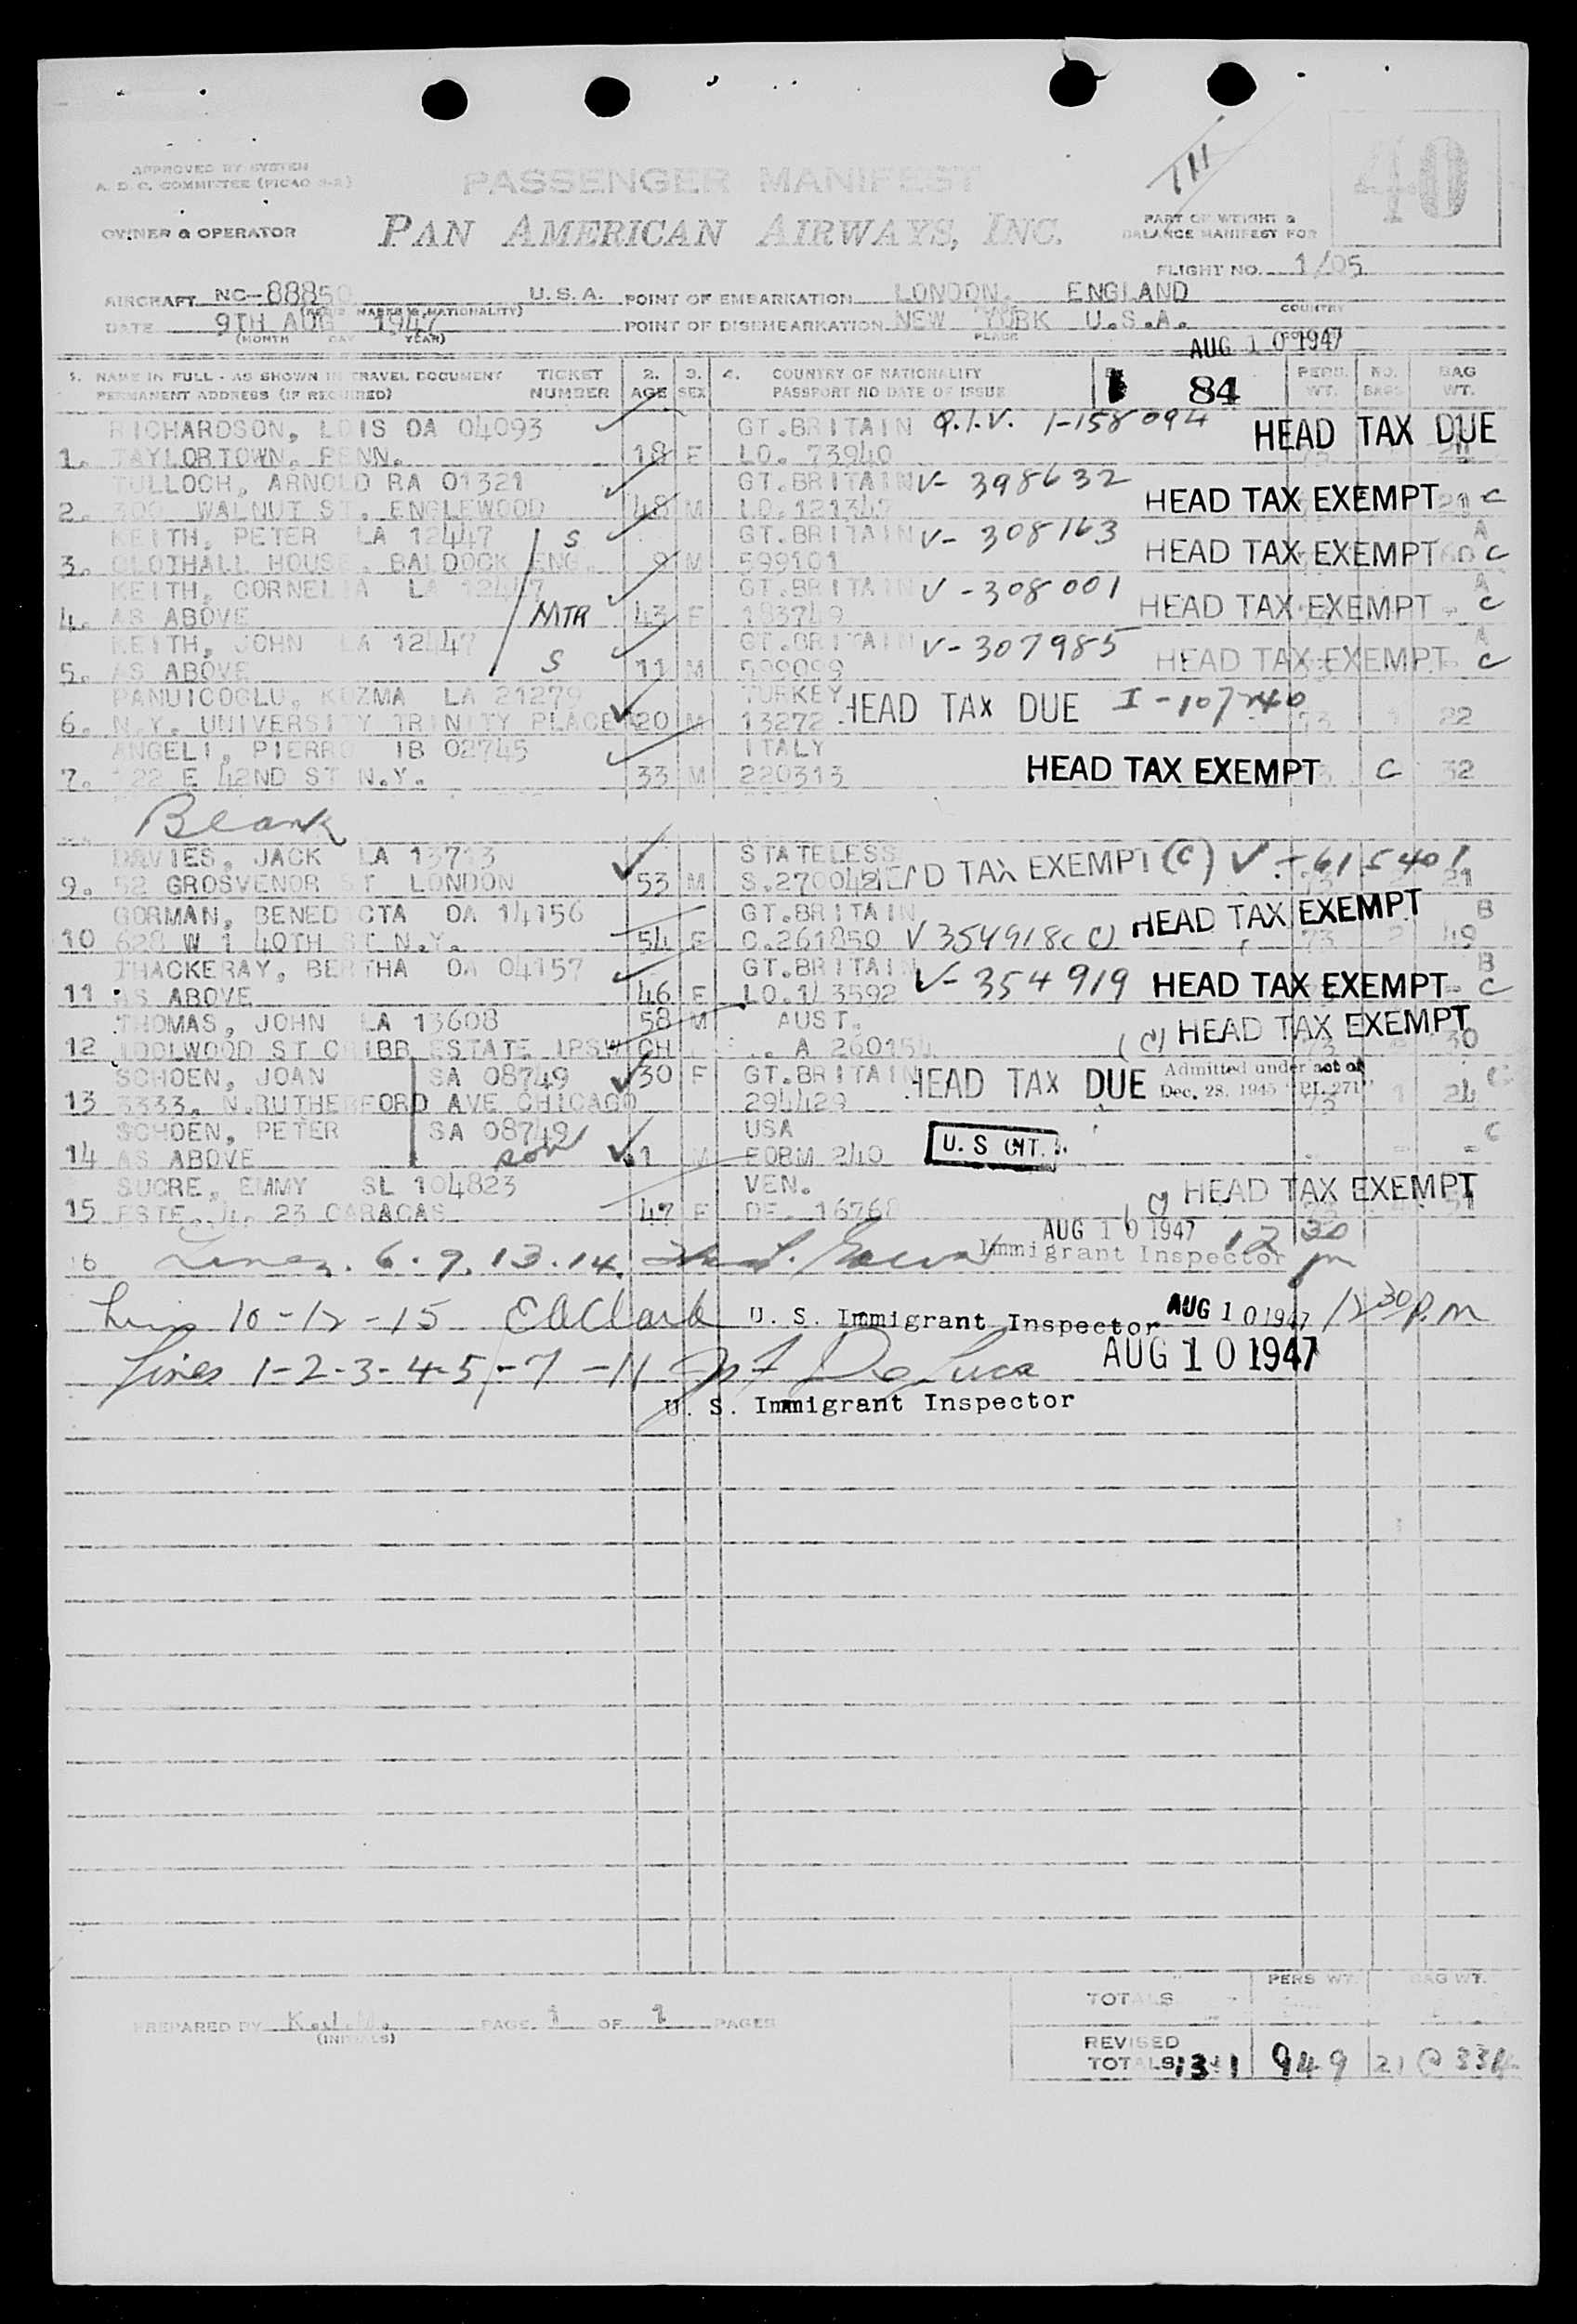 APPROVED BY SYSTEM
A. D. C. COMMITTEE (PICAO
PASSENGER MANIFEST
40
OWNER & OPERATOR
PAN AMERICAN AIRWAYS, INC.
PART OF WEIGHT &
BALANCE MANIFEST FOR
FLIGHT NO. 1/05
AIRCRAFT NC-88850 U.S.A. POINT OF EMBARKATION LONDON, ENGLAND
(MARKS & NATIONALITY) COUNTRY
DATE 9TH AUG 1947 POINT OF DISEMBARKATION NEW YORK U.S.A.
(MONTH DAY YEAR) PLACE
AUG 10 1947
1. NAME IN FULL - AS SHOWN IN TRAVEL DOCUMENT TICKET 2. 3. 4. COUNTRY OF NATIONALITY 84 PERS. NO. BAG
PERMANENT ADDRESS (IF REQUIRED) NUMBER AGE SEX PASSPORT NO DATE OF ISSUE WT. BAGS WT.
RICHARDSON, LOIS OA 04093 GT.BRITAIN Q.I.V. I-158094 HEAD TAX DUE
1. TAYLORTOWN, PENN. 18 F LO. 73940
TULLOCH, ARNOLD RA 01321 GT.BRITAIN V- 398632 HEAD TAX EXEMPT C
2. 300 WALNUT ST. ENGLEWOOD 48 M LO.121347 21
KEITH, PETER LA 12447 S GT.BRITAIN V- 308163 A
3. CLOTHALL HOUSE. BALDOCK ENG. 9 M 599101 HEAD TAX EXEMPT 60 C
KEITH, CORNELIA LA 12447 GT.BRITAIN V-308001 A
4. AS ABOVE MTR 43 F 183749 HEAD TAX EXEMPT - C
KEITH, JOHN LA 12447 GT.BRITAIN V-307985 A
5. AS ABOVE S 11 M 599099 HEAD TAX EXEMPT - C
PANUICOGLU, KOZMA LA 21279 TURKEY HEAD TAX DUE I-107240
6. N.Y. UNIVERSITY TRINITY PLACE 20 M 13272 73 1 22
ANGELI, PIERRO IB 02745 ITALY
7. 122 E 42ND ST N.Y. 33 M 220313 HEAD TAX EXEMPT C 32
Blank
DAVIES, JACK LA 13713 STATELESS HEAD TAX EXEMPT (C) V-615401
9. 52 GROSVENOR ST LONDON 53 M S.270042 73 2 21
GORMAN, BENEDICTA OA 14156 GT.BRITAIN HEAD TAX EXEMPT B
10 628 W 140TH ST N.Y. 54 F C.261850 V 354918 (C) 73 2 49
THACKERAY, BERTHA OA 04157 GT.BRITAIN B
11 AS ABOVE 46 F LO.1/3592 V- 354919 HEAD TAX EXEMPT - C
THOMAS, JOHN LA 13608 58 M AUST. (C) HEAD TAX EXEMPT
12 IDOLWOOD ST CRIBB ESTATE IPSWICH A 260154 30
SCHOEN, JOAN SA 08749 30 F GT.BRITAIN HEAD TAX DUE Admitted under act of C
13 3333. N.RUTHERFORD AVE CHICAGO 294429 Dec. 28, 1945 "PL 271" 73 1 24
SCHOEN, PETER SA 08749 USA U. S CIT. C
14 AS ABOVE son 1 M EOBM 240 - -
SUCRE, EMMY SL 104823 VEN. (C) HEAD TAX EXEMPT
15 ESTE. 4. 23 CARACAS 47 F DE. 16768 51
AUG 10 1947 12 30 pm
16 Lines. 6. 9. 13. 14. Immigrant Inspector
Lines 10-12-15 E A Clark U. S. Immigrant Inspector AUG 10 1947 12 30 P.m
Lines 1-2-3-4-5-7-11 De Luca AUG 10 1947
U. S. Immigrant Inspector
PERS WT. BAG WT.
TOTALS
PREPARED BY (INITIALS) PAGE 1 OF 1 PAGES
REVISED
TOTALS 949 21 @ 334